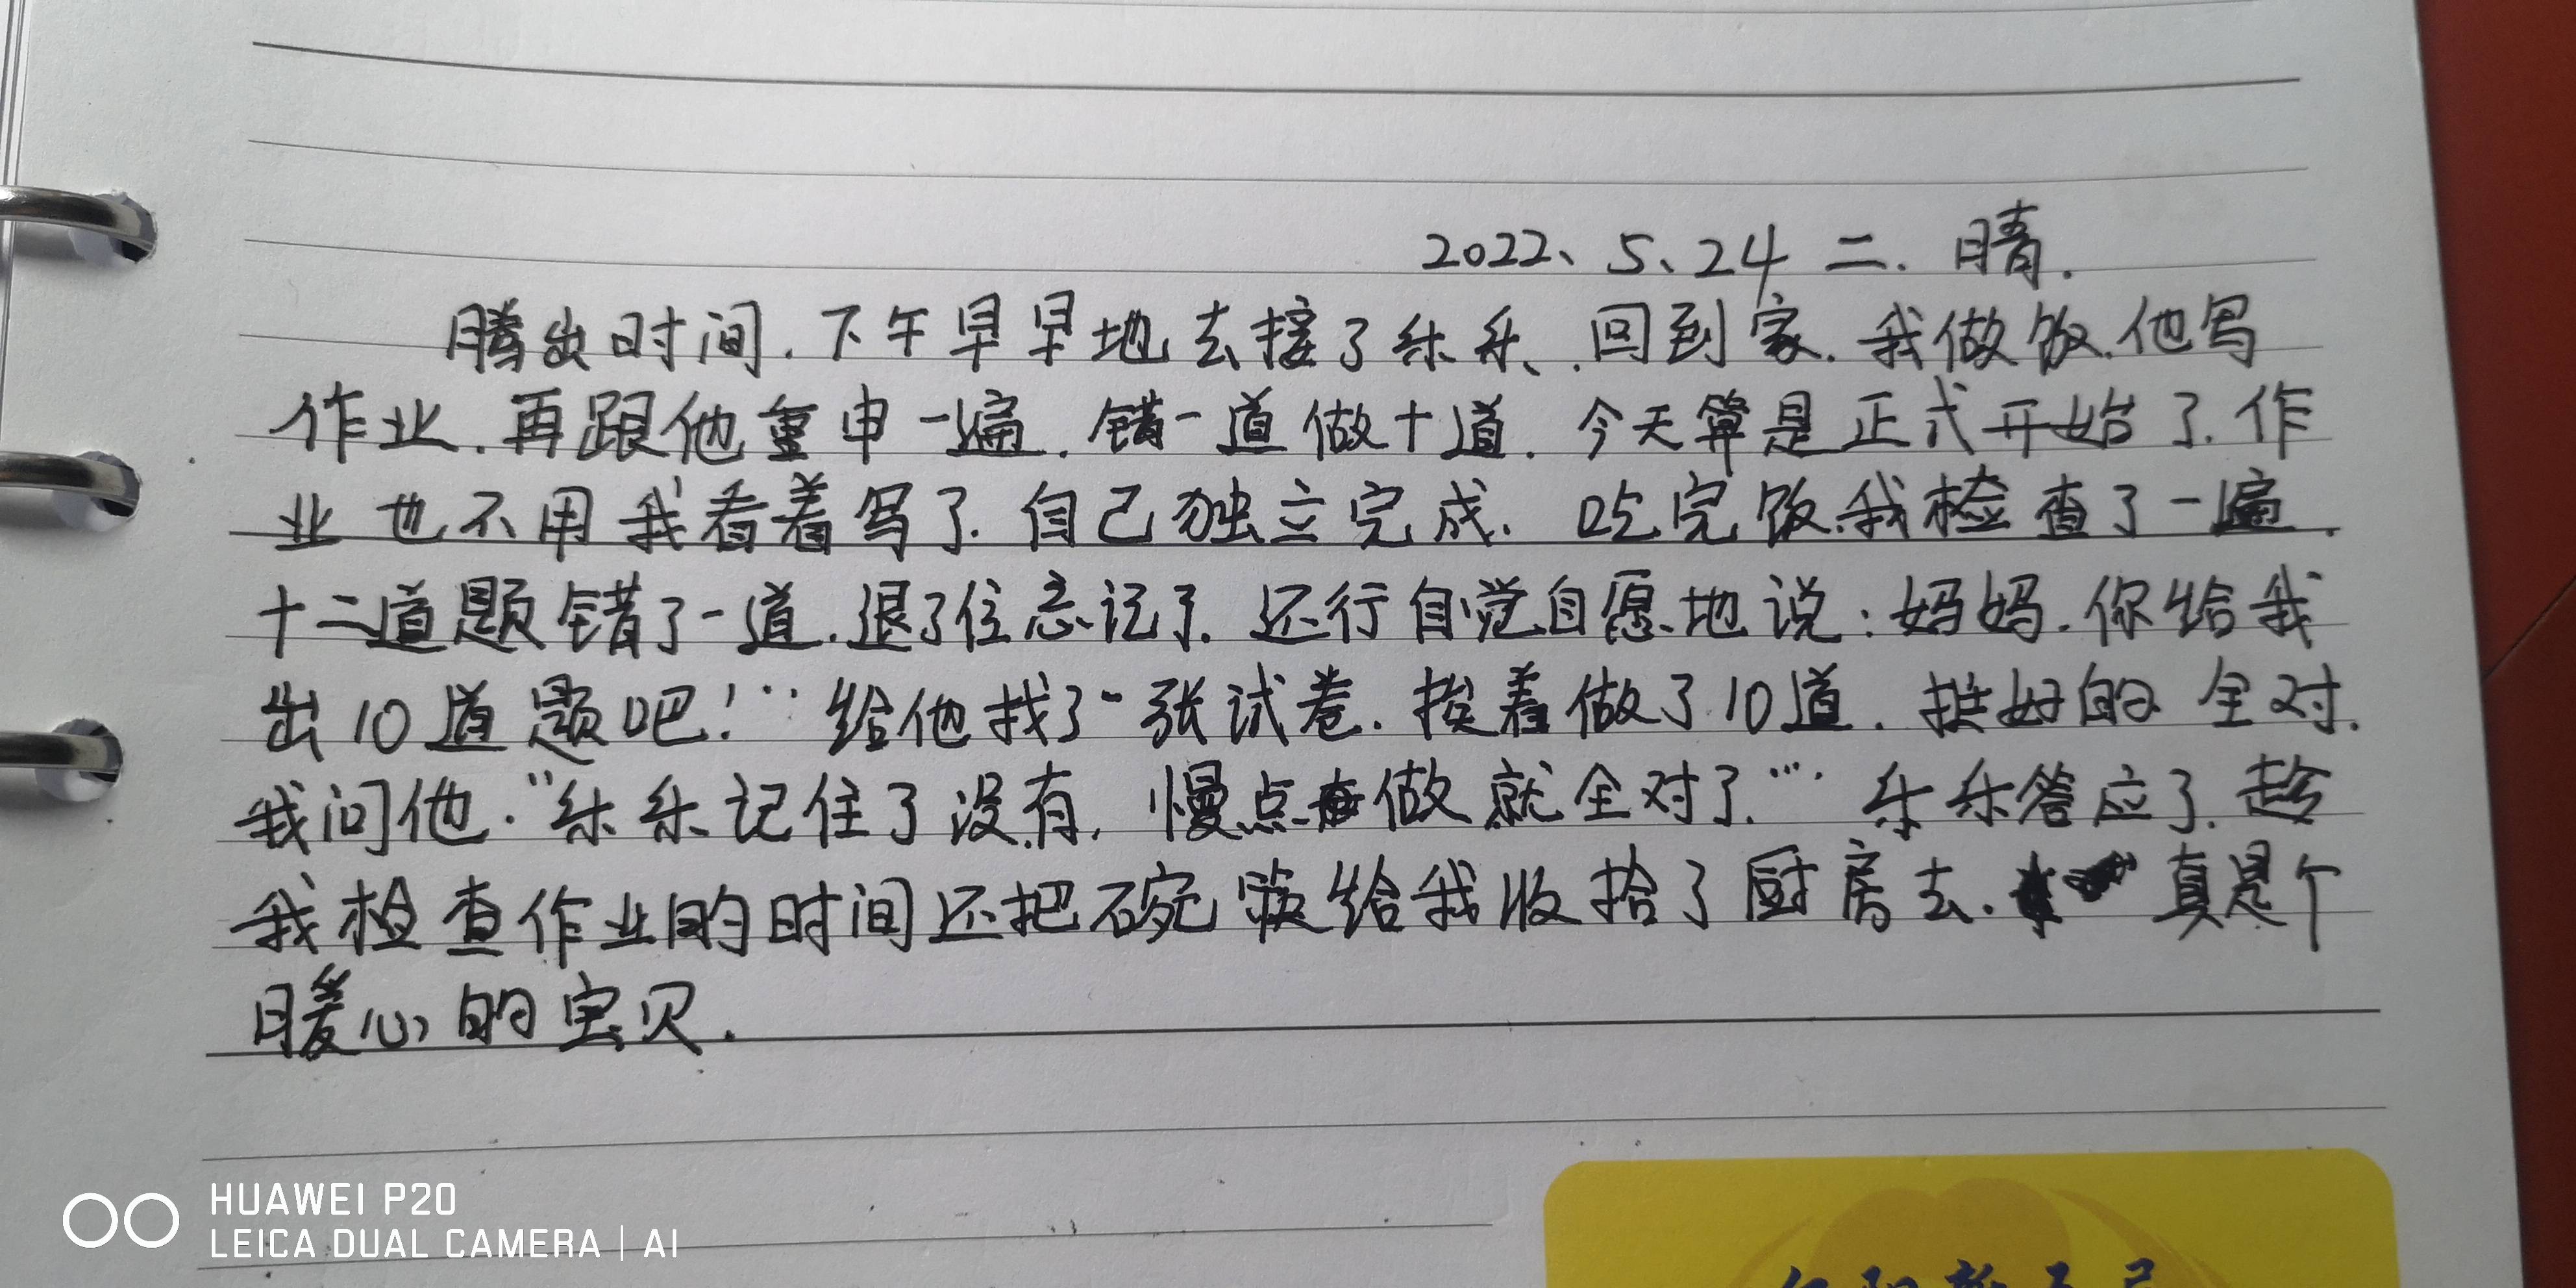 2022、5、24 二. 晴.
腾出时间.下午早早地去接了乐乐.回到家.我做饭.他写
作业.再跟他重申一遍.错一道做十道.今天算是正式开始了.作
业也不用我看着写了.自己独立完成.吃完饭.我检查了一遍.
十二道题错了一道.退了位忘记了.还行自觉自愿地说:妈妈.你给我
出10道题吧!"给他找了一张试卷.挨着做了10道.挺好的全对.
我问他."乐乐记住了没有,慢点做就全对了."乐乐答应了.趁
我检查作业的时间还把碗筷给我收拾了厨房去.真是个
暖心的宝贝.
HUAWEI P20
LEICA DUAL CAMERA | AI